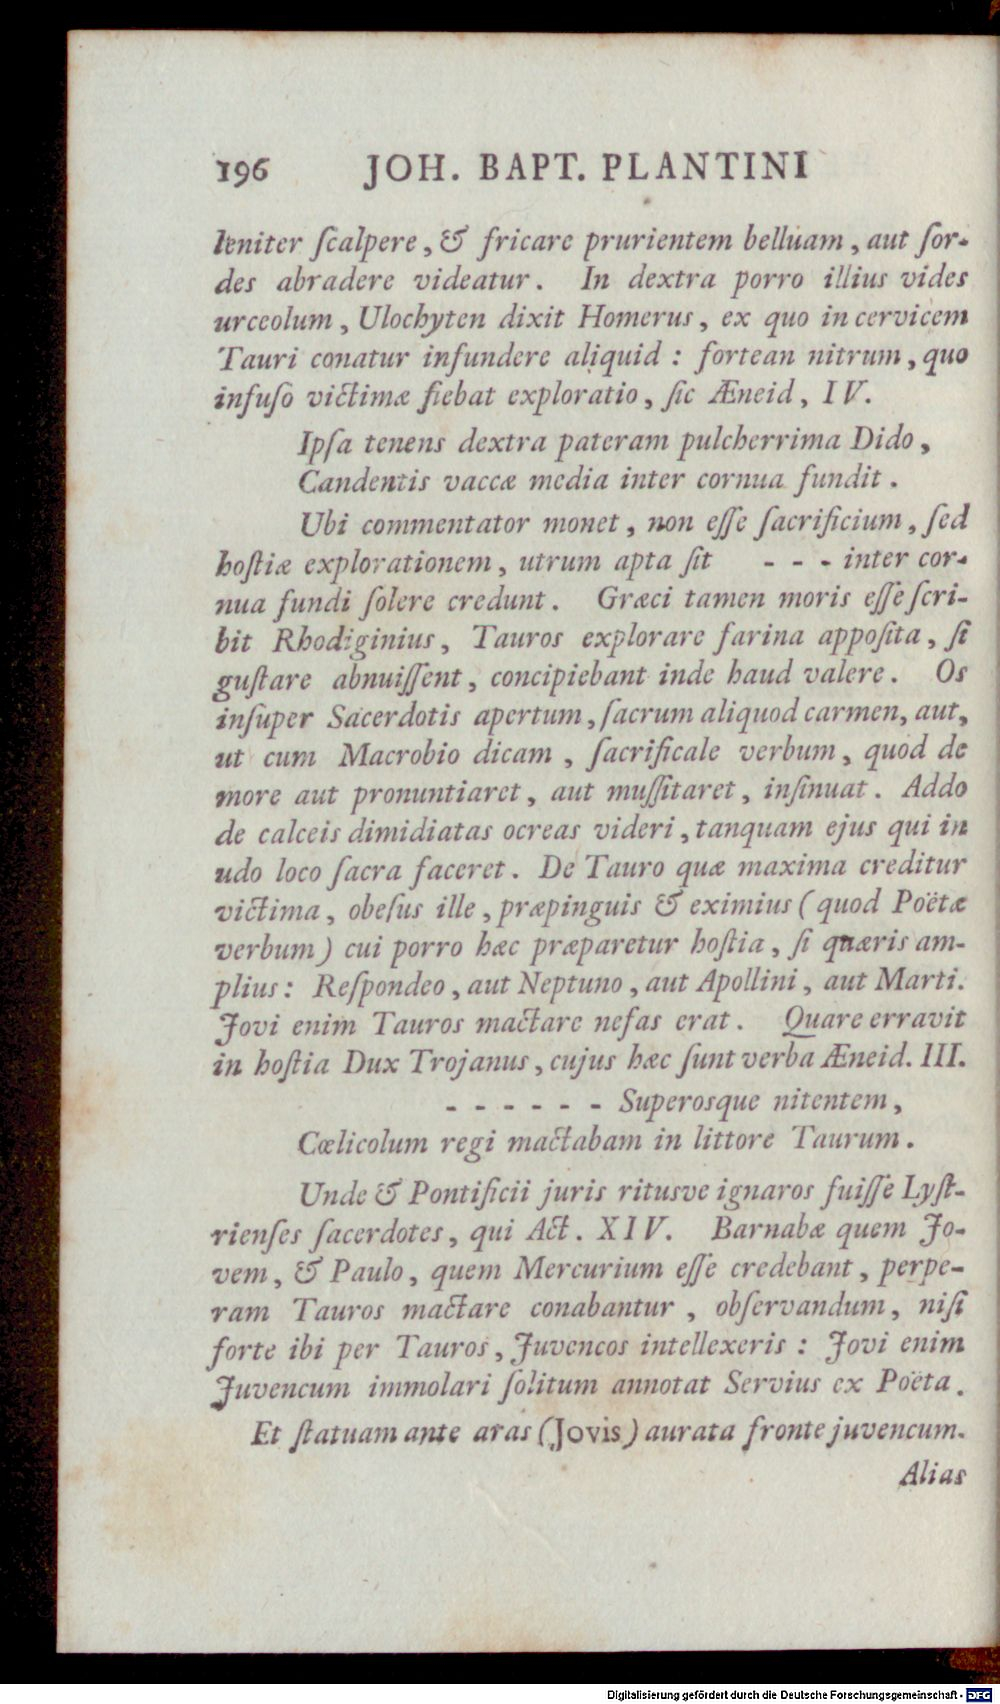 196 JOH. BAPT. PLANTINI
leniter ſcalpere, & fricare prurientem belluam, aut ſor-
des abradere videatur. In dextra porro illius vides
urceolum, Ulochyten dixit Homerus, ex quo in cervicem
Tauri conatur infundere aliquid: fortean nitrum, quo
infuſo victimæ fiebat exploratio, ſic Æneid, IV.
Ipſa tenens dextra pateram pulcherrima Dido,
Candentis vaccæ media inter cornua fundit.
Ubi commentator monet, non eſſe ſacrificium, ſed
hoſtiæ explorationem, utrum apta ſit - - - inter cor-
nua fundi ſolere credunt. Græci tamen moris eſſe ſcri-
bit Rhodiginius, Tauros explorare farina appoſita, ſi
guſtare abnuiſſent, concipiebant inde haud valere. Os
inſuper Sacerdotis apertum, ſacrum aliquod carmen, aut,
ut cum Macrobio dicam, ſacrificale verbum, quod de
more aut pronuntiaret, aut muſſitaret, inſinuat. Addo
de calceis dimidiatas ocreas videri, tanquam ejus qui in
udo loco ſacra faceret. De Tauro quæ maxima creditur
victima, obeſus ille, præpinguis & eximius (quod Poëtæ
verbum) cui porro hæc præparetur hoſtia, ſi quæris am-
plius: Reſpondeo, aut Neptuno, aut Apollini, aut Marti.
Jovi enim Tauros mactare nefas erat. Quare erravit
in hoſtia Dux Trojanus, cujus hæc ſunt verba Æneid. III.
- - - - - - Superosque nitentem,
Cœlicolum regi mactabam in littore Taurum.
Unde & Pontificii juris ritusve ignaros fuiſſe Lyſt-
rienſes ſacerdotes, qui Act. XIV. Barnabæ quem Jo-
vem, & Paulo, quem Mercurium eſſe credebant, perpe-
ram Tauros mactare conabantur, obſervandum, niſi
forte ibi per Tauros, Juvencos intellexeris: Jovi enim
Juvencum immolari ſolitum annotat Servius ex Poëta.
Et ſtatuam ante aras (Jovis) aurata fronte juvencum.
Alias
Digitalisierung gefördert durch die Deutsche Forschungsgemeinschaft - DFG